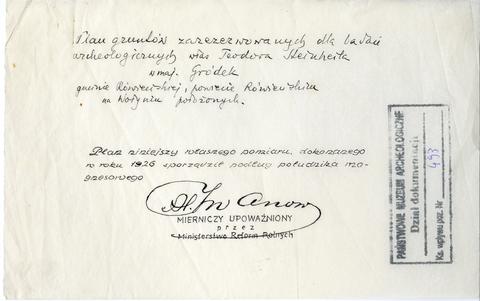 Plan gruntów zarezerwowanych dla badań
archeologicznych włas Teodora Steinheila
w maj. Gródek
gminie Rówieńskiej, powiecie Rówieńskim
na Wołyniu położonych.
Plan niniejszy własnego pomiaru, dokonanego
w roku 1926 sporządził podług południka ma-
gnesowego
MIERNICZY UPOWAŻNIONY
przez
Ministerstwo Reform Rolnych
PAŃSTWOWE MUZEUM ARCHEOLOGICZNE
Dział dokumentacji
Ks. wpływu poz. Nr 493